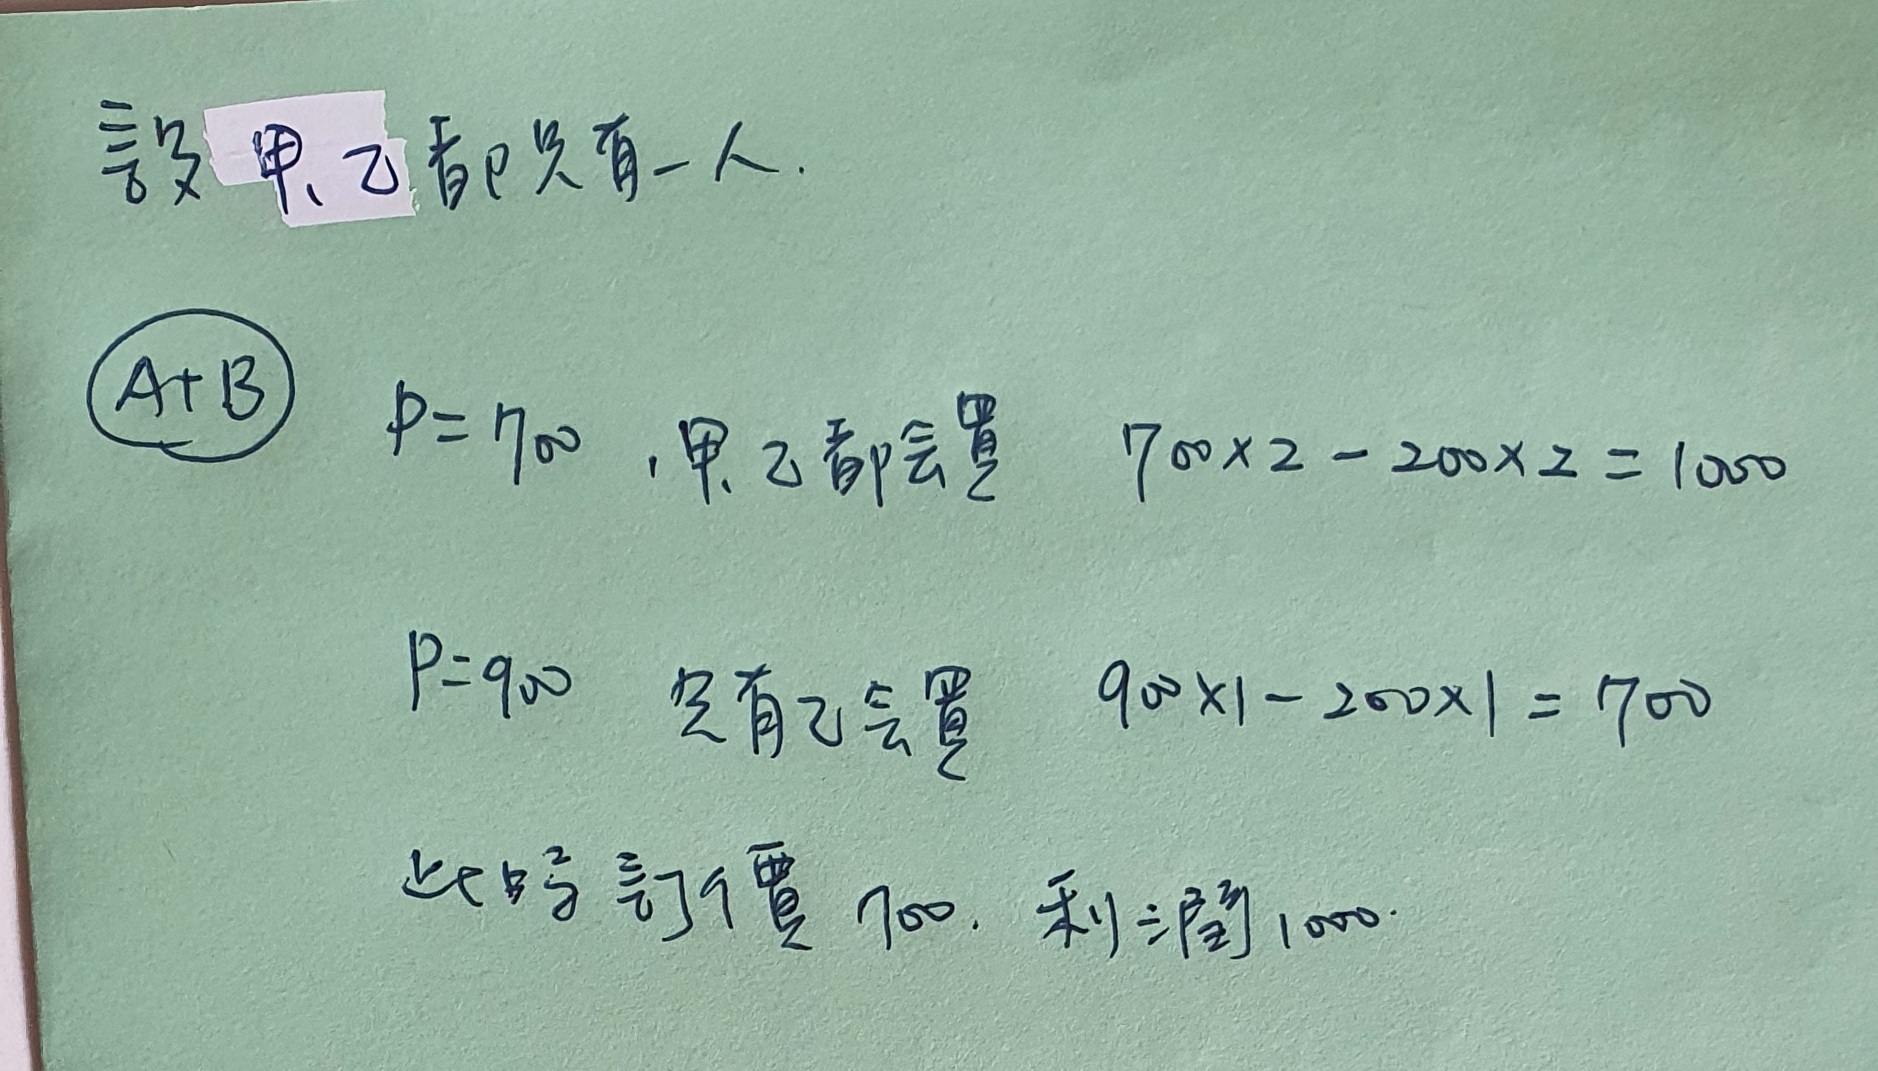 設甲、乙都只有一人.
A+B
P=700,甲、乙都会買 700×2-200×2=1000
P=900 只有乙会買 900×1-200×1=700
此時訂價700.利潤1000.